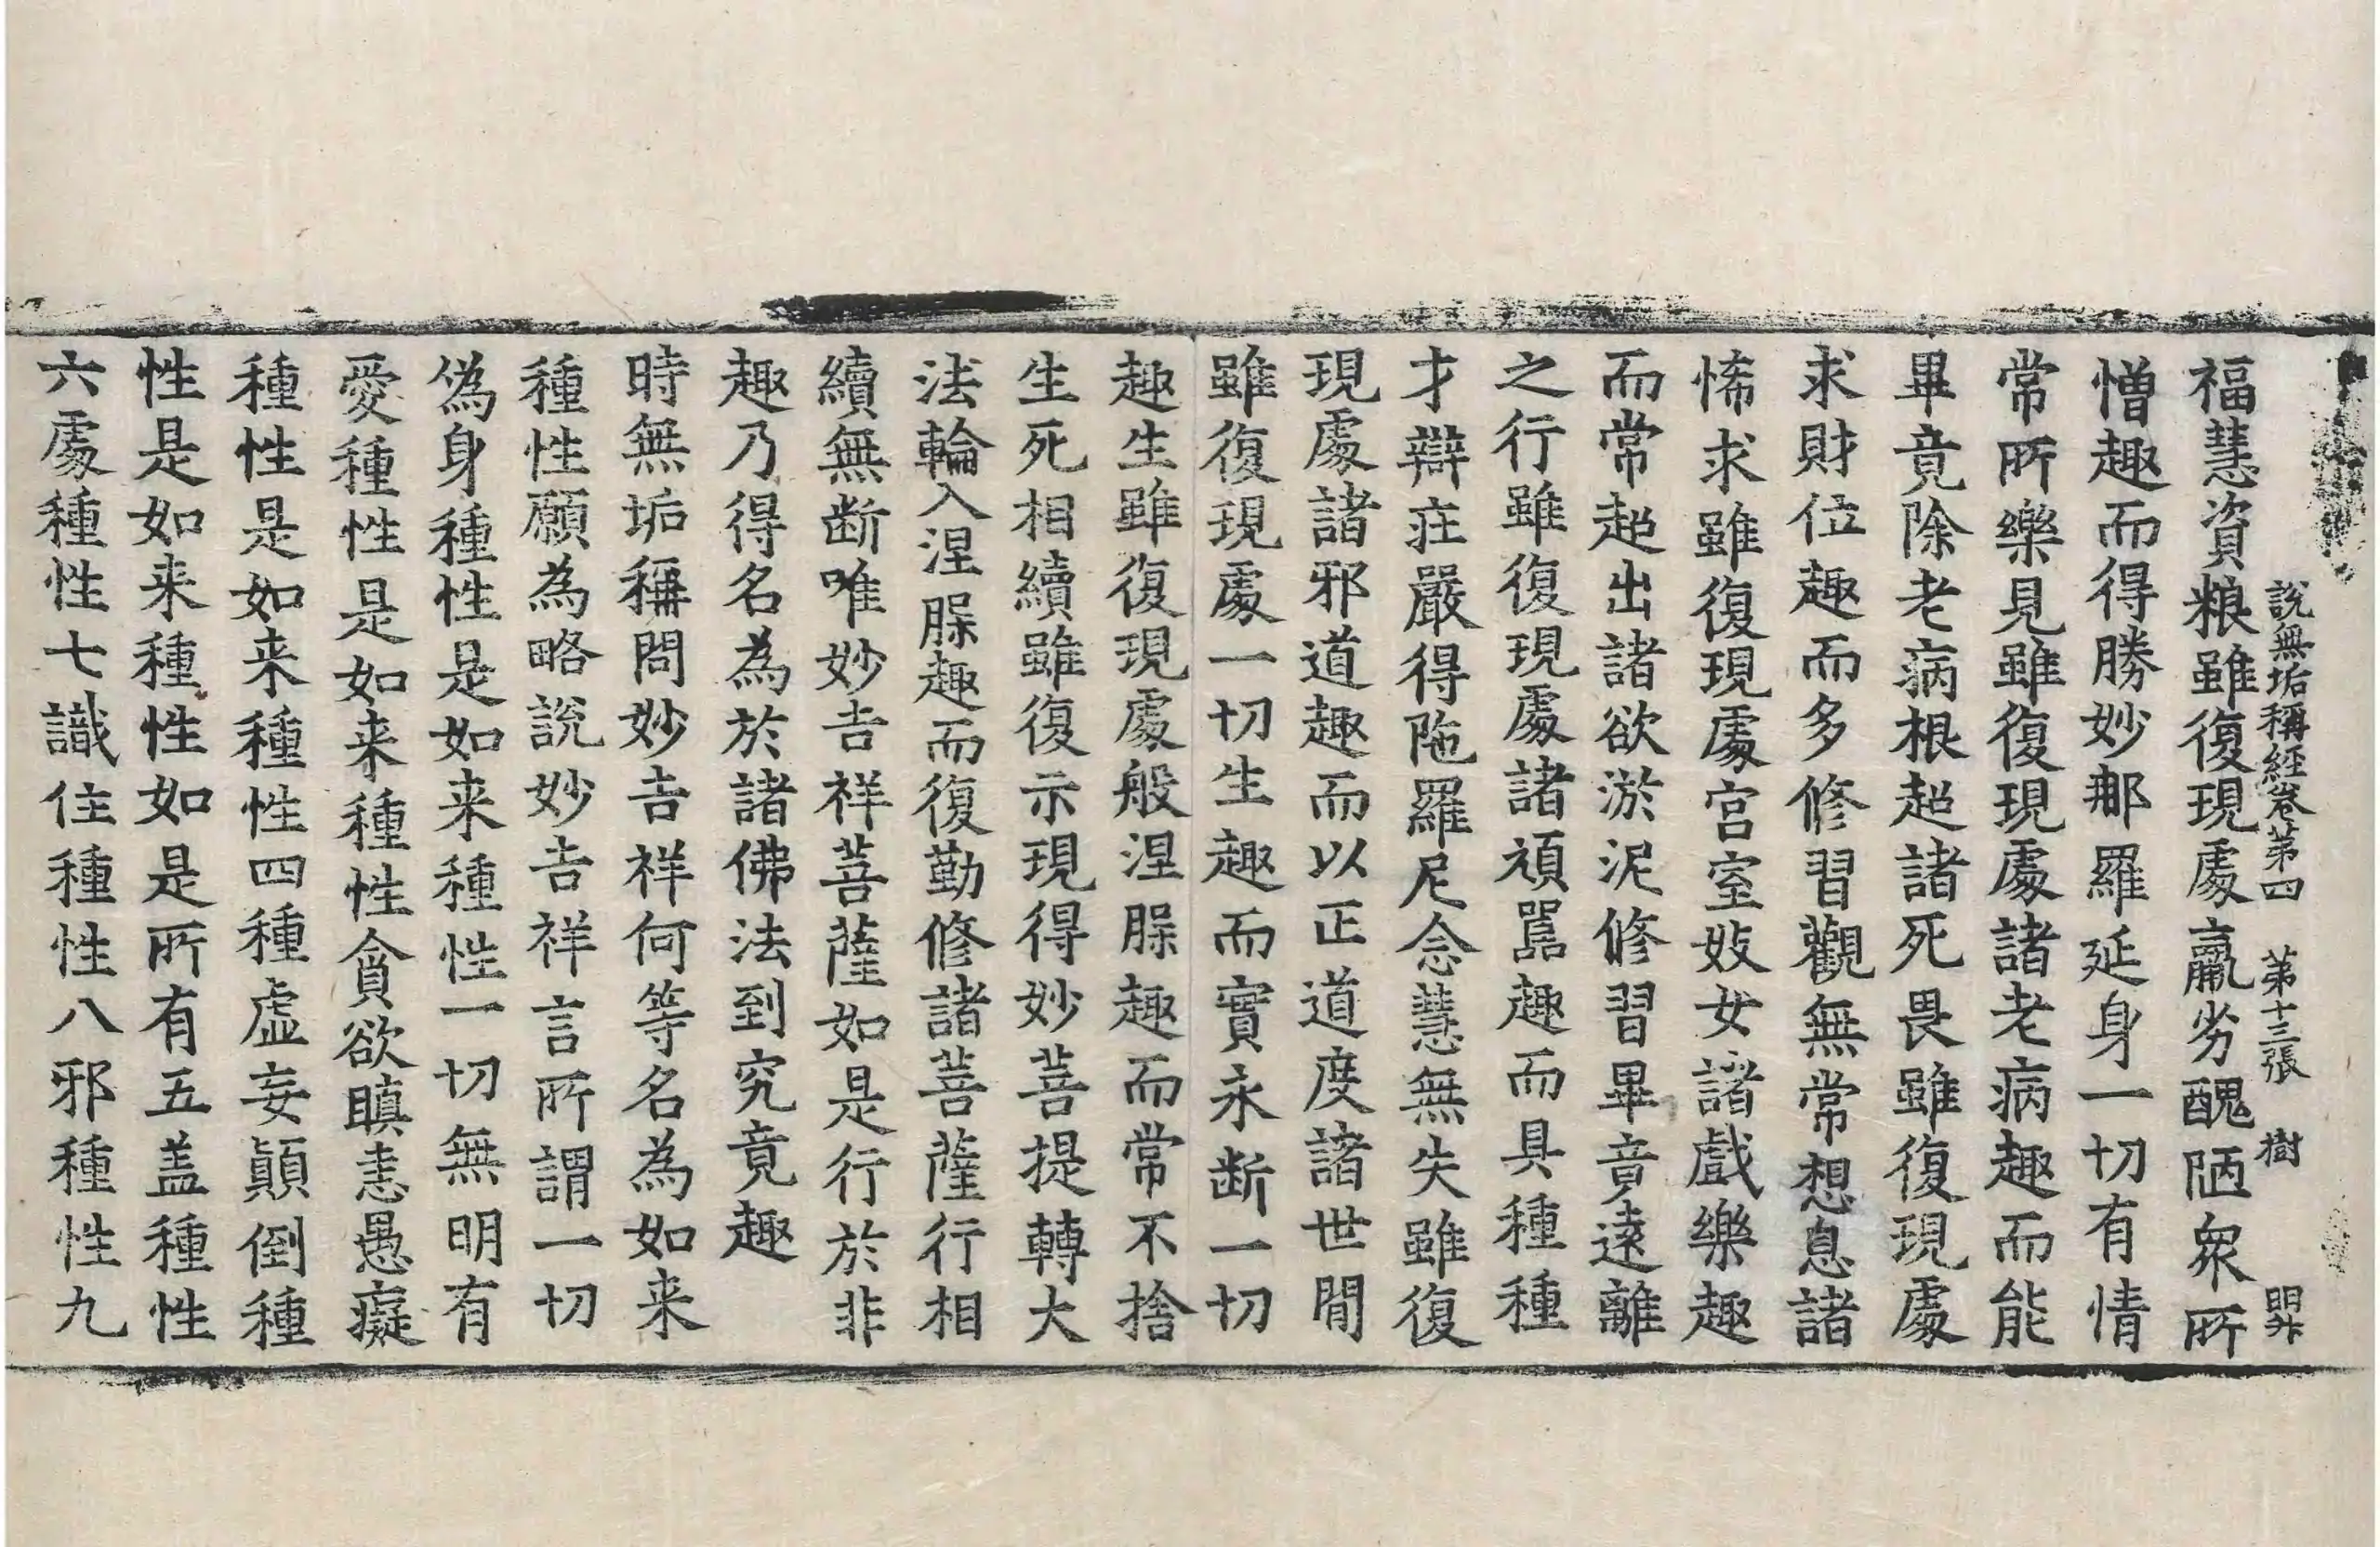 說無垢稱經卷第四　第十三張　樹　明升
福慧資粮雖復現處羸劣醜陋衆所
憎趣而得勝妙那羅延身一切有情
常所樂見雖復現處諸老病趣而能
畢竟除老病根超諸死畏雖復現處
求財位趣而多修習觀無常想息諸
悕求雖復現處宮室妓女諸戲樂趣
而常超出諸欲淤泥修習畢竟遠離
之行雖復現處諸頑嚚趣而具種種
才辯莊嚴得陁羅尼念慧無失雖復
現處諸邪道趣而以正道度諸世間
雖復現處一切生趣而實永断一切
趣生雖復現處般涅槃趣而常不捨
生死相續雖復示現得妙菩提轉大
法輪入涅槃趣而復勤修諸菩薩行相
續無断唯妙吉祥菩薩如是行於非
趣乃得名為於諸佛法到究竟趣
時無垢稱問妙吉祥何等名為如来
種性願為略說妙吉祥言所謂一切
偽身種性是如来種性一切無明有
愛種性是如来種性貪欲瞋恚愚癡
種性是如来種性四種虛妄顚倒種
性是如来種性如是所有五盖種性
六處種性七識住種性八邪種性九